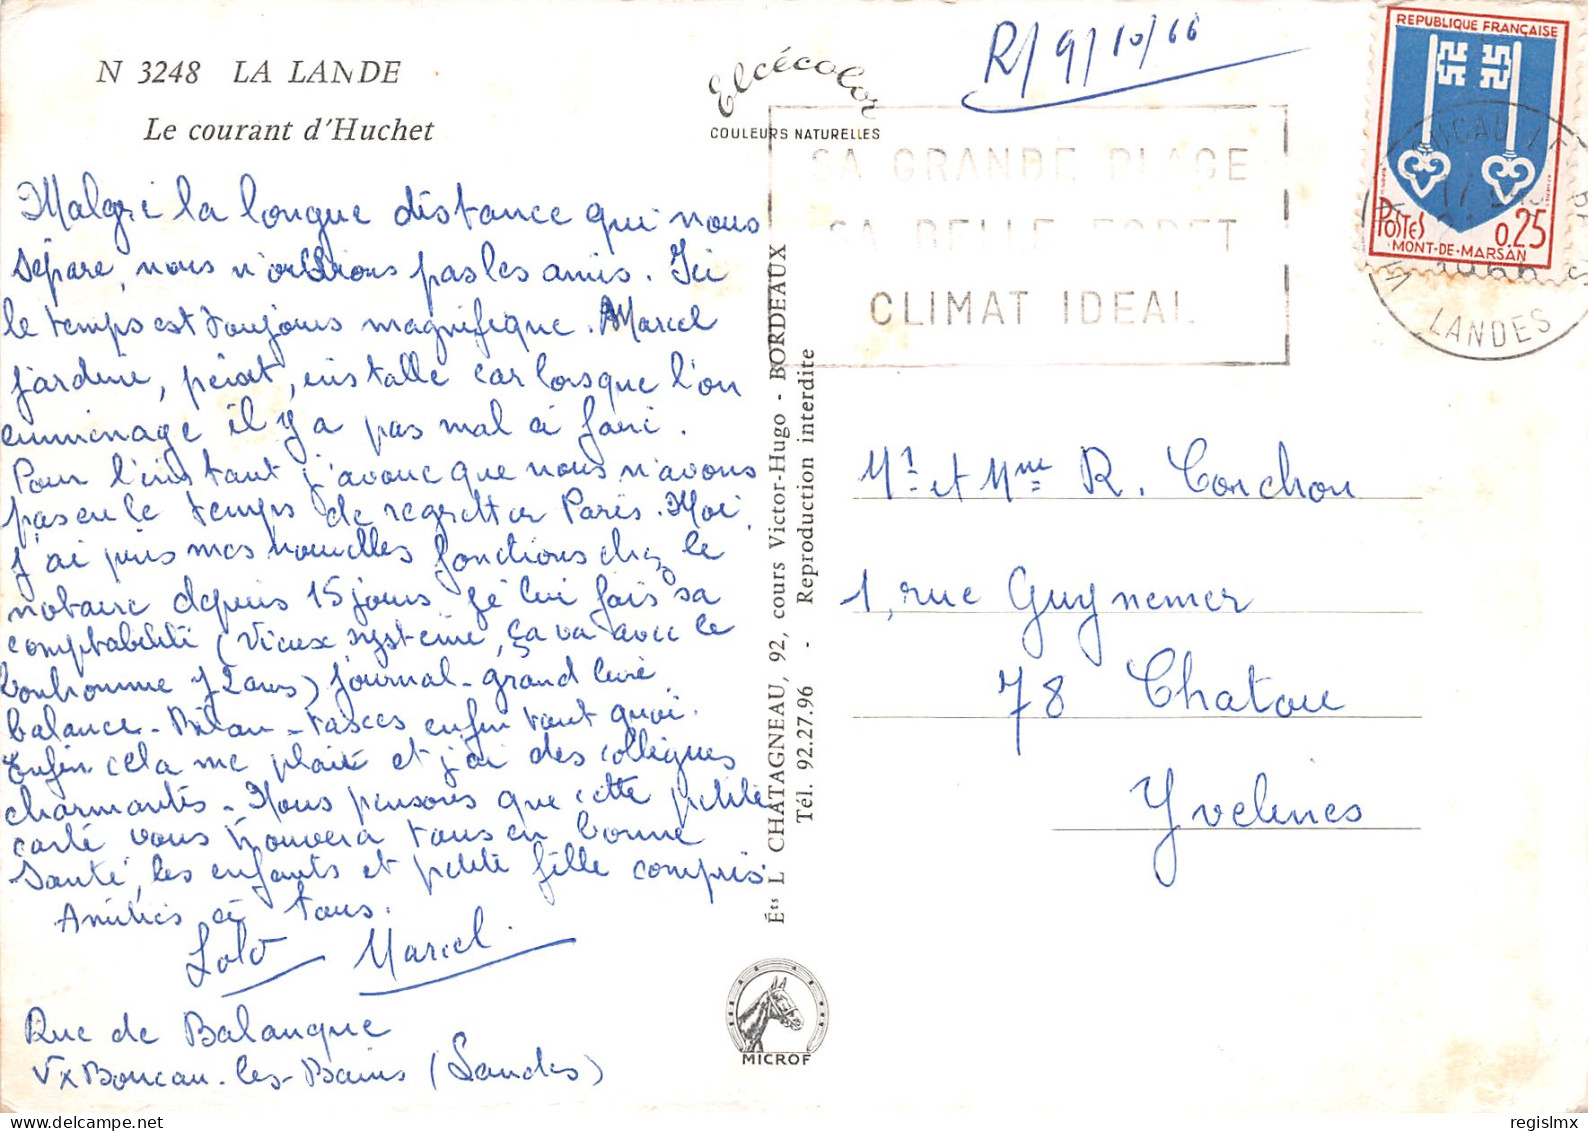 N 3248 LA LANDE
Le courant d'Huchet
Malgré la longue distance qui nous
sépare, nous n'oublions pas les amis. Ici
le temps est toujours magnifique. Marcel
jardine, peint, installe car lorsque l'on
emménage il y a pas mal à faire.
Pour l'instant j'avoue que nous n'avons
pas eu le temps de regretter Paris. Moi
j'ai pris mes nouvelles fonctions chez le
notaire depuis 15 jours. Je lui fais sa
comptabilité (Vieux système, ça va avec le
bonhomme 72 ans) Journal - grand livre
balance - Bilan - taxes enfin tout quoi.
Enfin cela me plait et j'ai des collègues
charmantes - Nous pensons que cette petite
carte vous trouvera tous en bonne
Santé, les enfants et petite fille compris
Amitiés à tous.
Lolo Marcel.
Rue de Balanque
Vx Boucau-les-Bains (Landes)
Elcécolor
COULEURS NATURELLES
Éts L CHATAGNEAU, 92, cours Victor-Hugo - BORDEAUX
Tél. 92.27.96 - Reproduction interdite
MICROF
R/9/10/66
SA GRANDE PLAGE
SA BELLE FORET
CLIMAT IDEAL
REPUBLIQUE FRANÇAISE
POSTES 0,25
MONT-DE-MARSAN
1966
LANDES
Mr et Mme R. Corchon
1, rue Guynemer
78 Chatou
Yvelines
regislmx